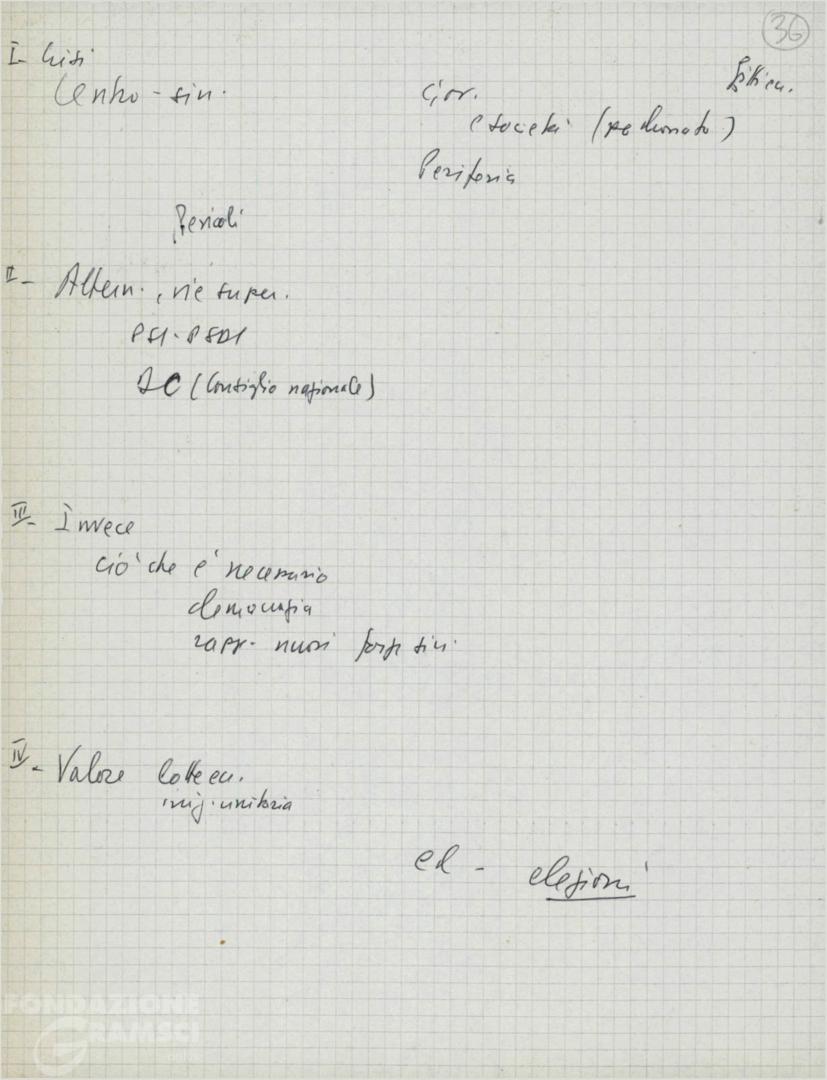 36
I- Crisi
Centro-sin.
Gov.
e società (padronato)
Periferia
Pericoli
II- Altern., vie super.
PSI-PSDI
DC (Consiglio nazionale)
III- Invece
ciò che è necessario
democrazia
rapp. nuovi forze sin.
IV- Valore lotte ec.
iniz. unitaria
ed - elezioni
FONDAZIONE
GRAMSCI